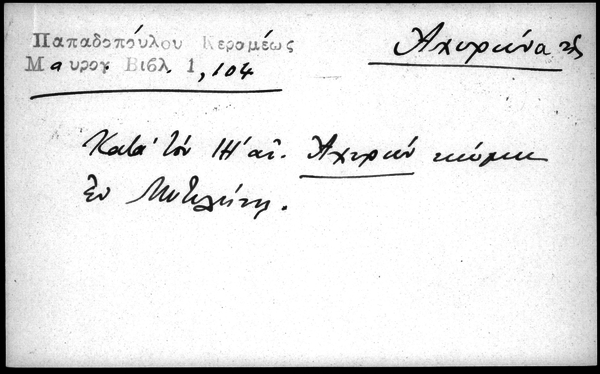 Παπαδοπούλου Κεραμέως
Μαυρογ. Βιβλ. 1, 104
Αχυρώνα
Κατά τόν ΙΗ' αἰ. Ἀχυρών κώμη
ἐν Μυτιλήνῃ.